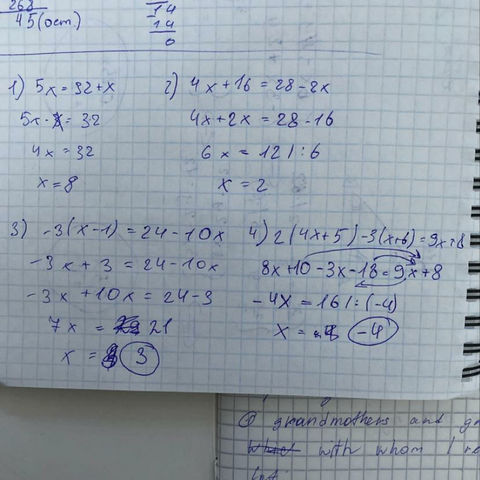 268
45(ост)
14
14
0
1) 5x = 32 + x
5x - x = 32
4x = 32
x = 8
2) 4x + 16 = 28 - 2x
4x + 2x = 28 - 16
6x = 12 | : 6
x = 2
3) -3(x-1) = 24 - 10x
-3x + 3 = 24 - 10x
-3x + 10x = 24 - 3
7x = 21
x = 3
4) 2(4x+5) - 3(x+6) = 9x+8
8x + 10 - 3x - 18 = 9x + 8
-4x = 16 | : (-4)
x = -4
grandmothers and
with whom I